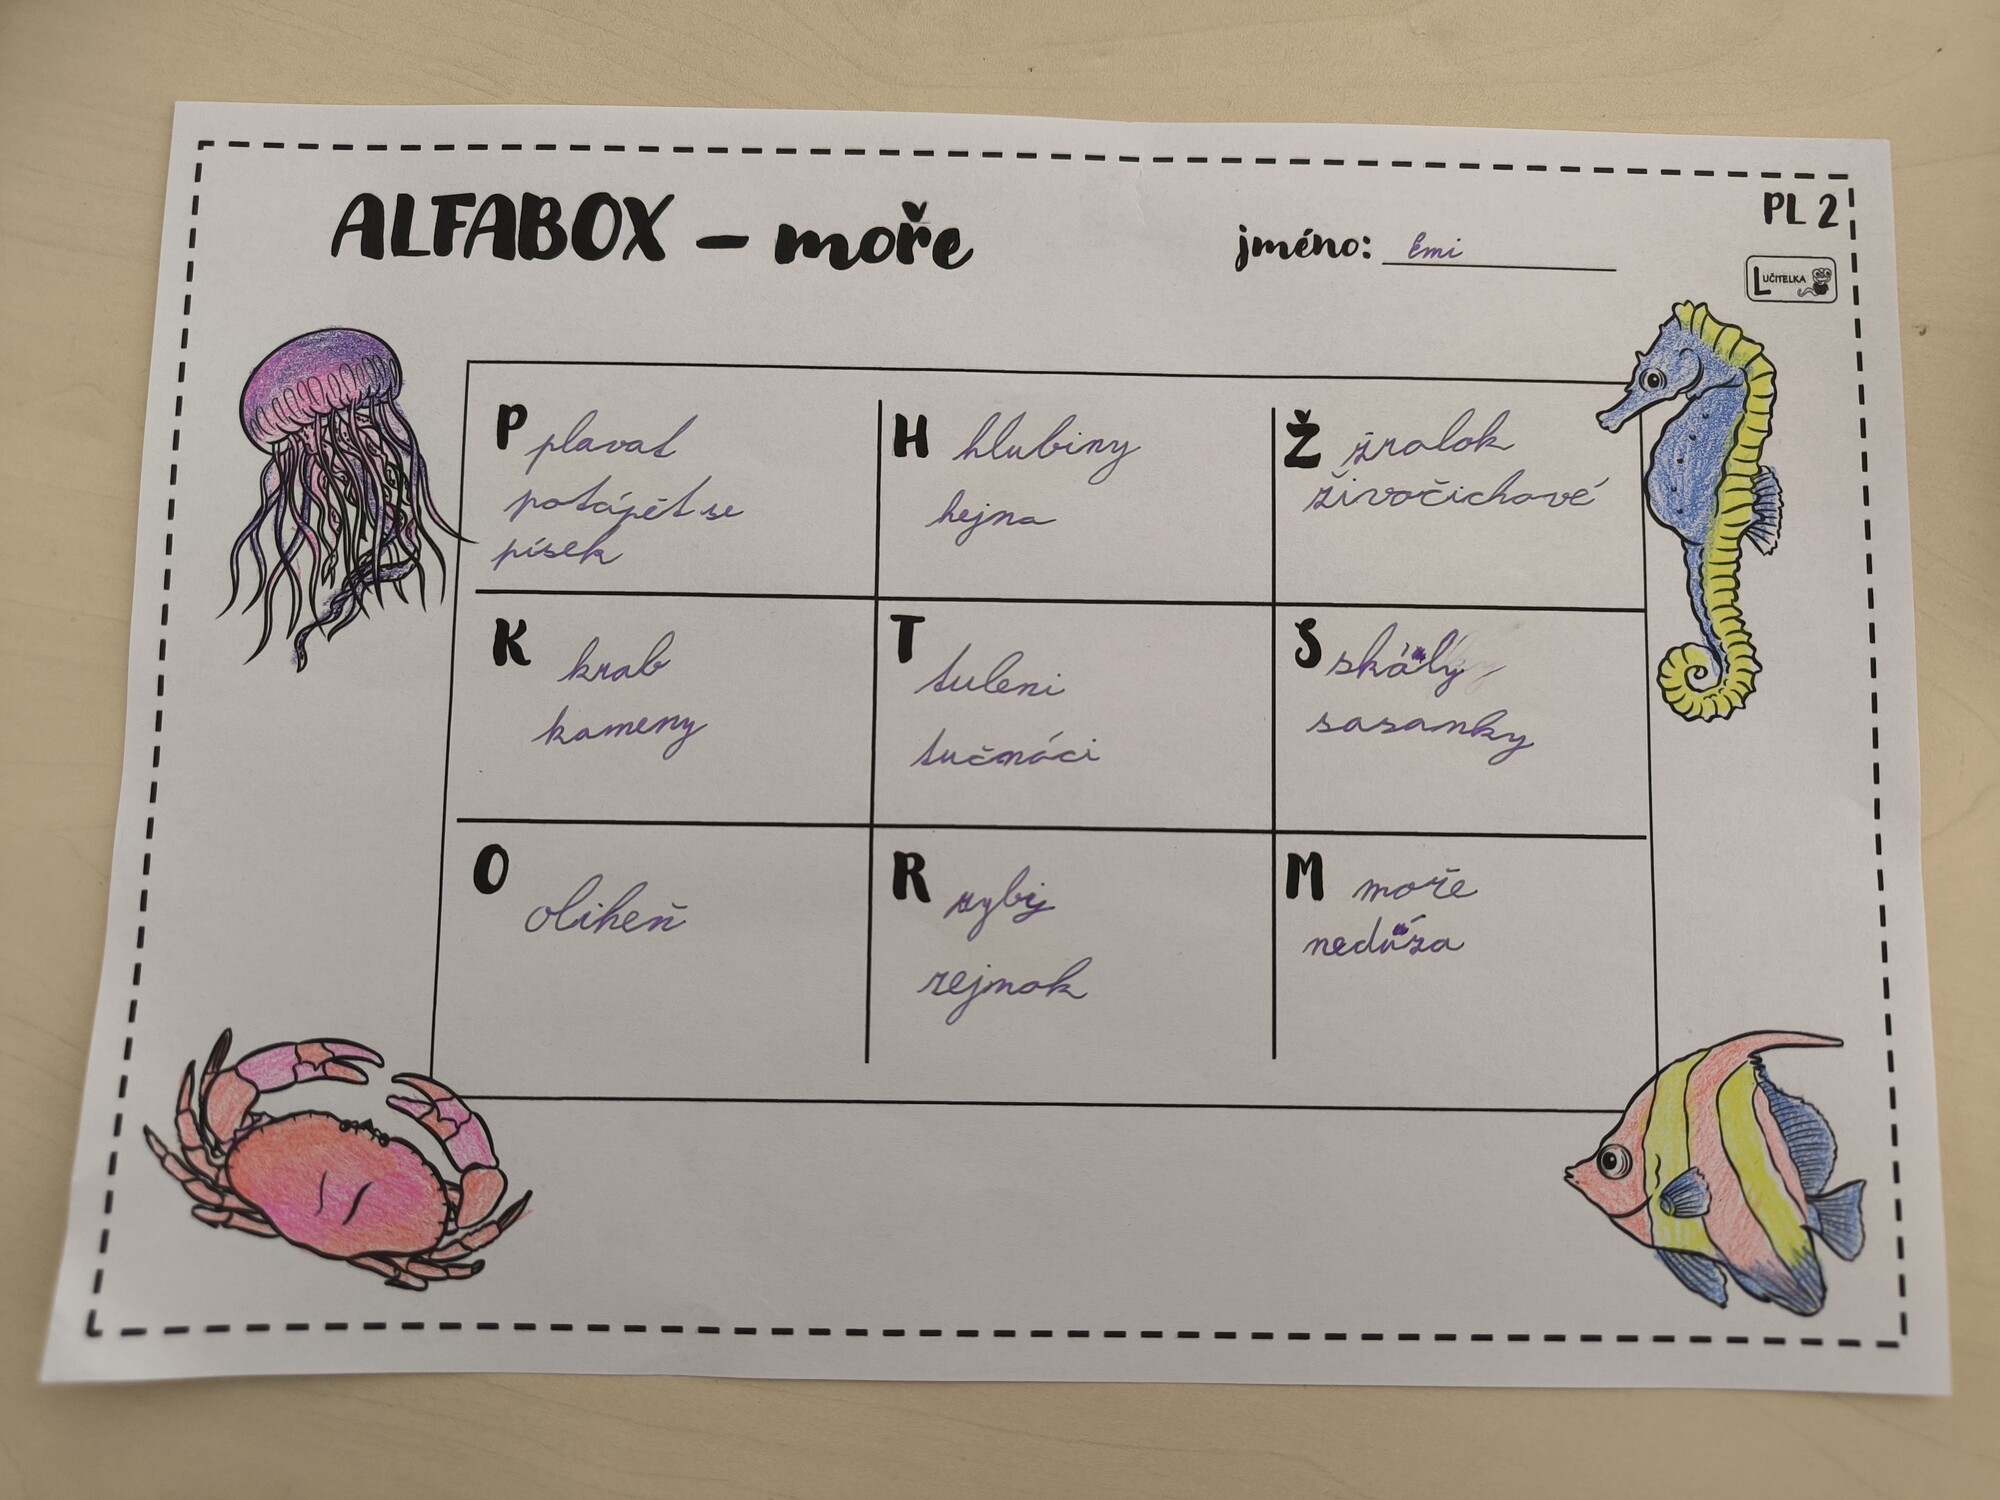 ALFABOX – moře
jméno: Emi
PL 2
LUČITELKA
P plavat
potápět se
písek
H hlubiny
hejna
Ž žralok
živočichové
K krab
kameny
T tuleni
tučnáci
S skály
sasanky
O oliheň
R ryby
rejnok
M moře
medúza